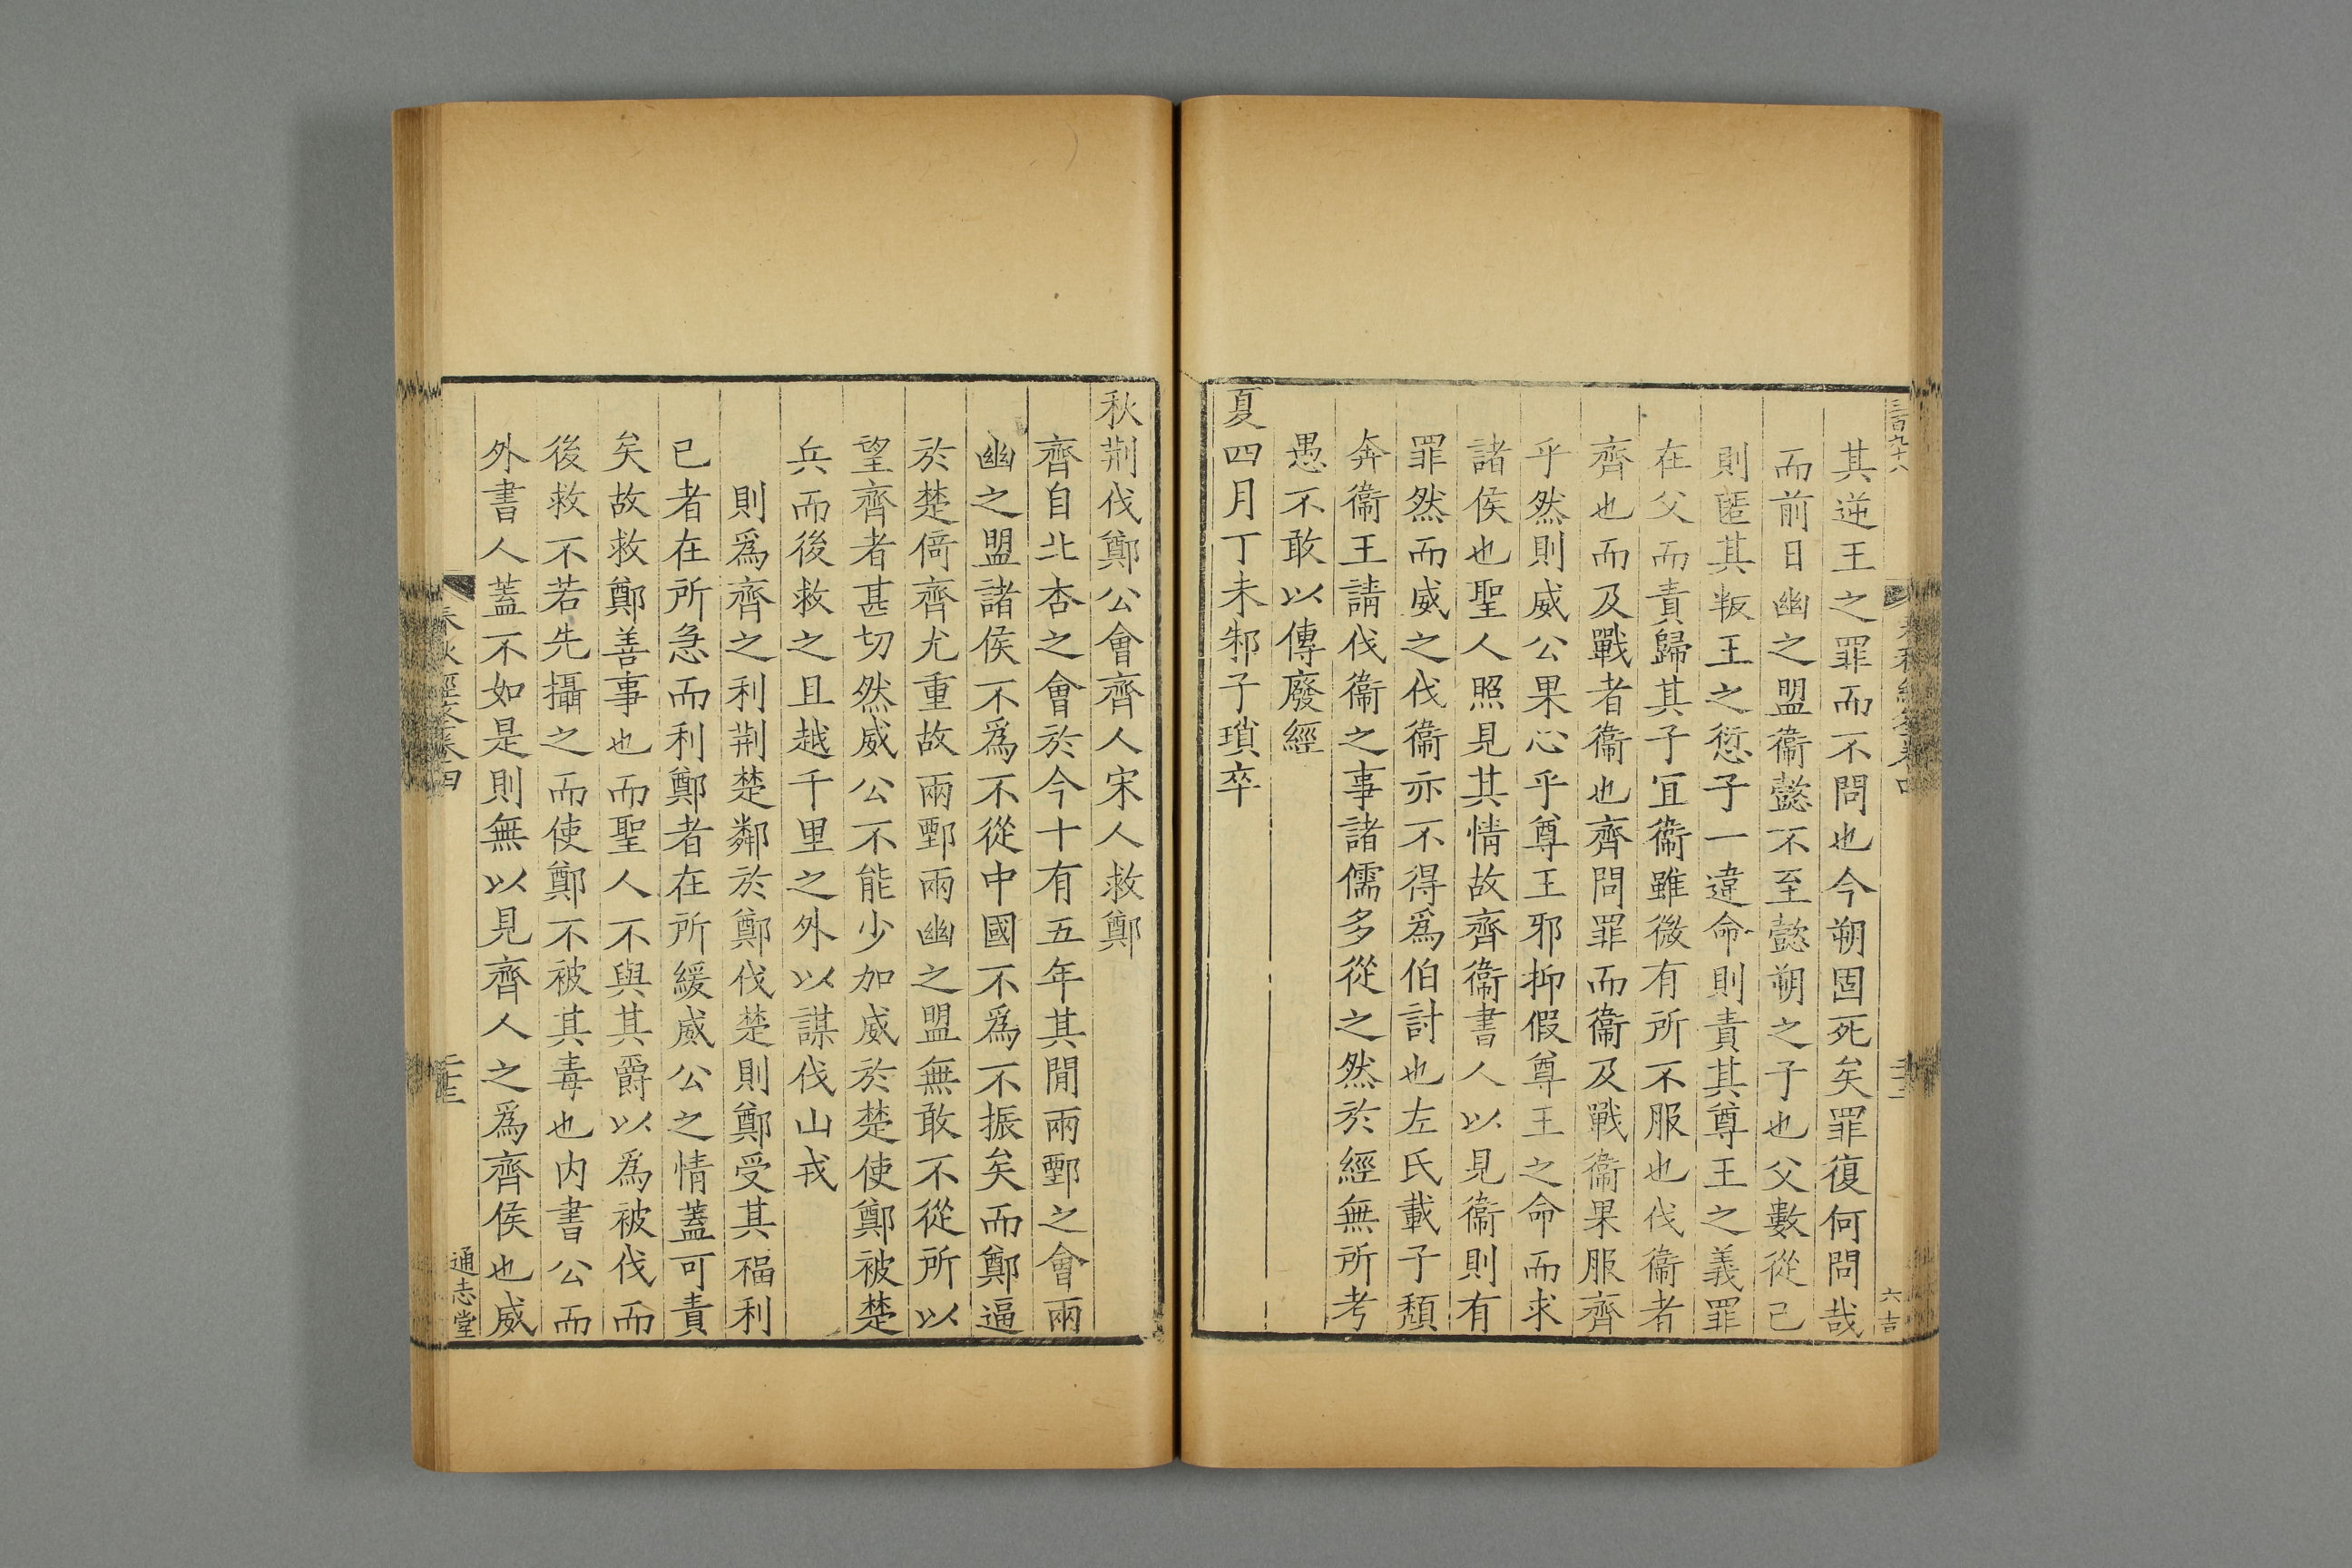 三百九十八
其逆王之罪而不問也今朔固死矣罪復何問哉
而前日幽之盟衞懿不至懿朔之子也父數從己
則匿其叛王之愆子一違命則責其尊王之義罪
在父而責歸其子宜衞雖微有所不服也伐衞者
齊也而及戰者衞也齊問罪而衞及戰衞果服齊
乎然則威公果心乎尊王邪抑假尊王之命而求
諸侯也聖人照見其情故齊衞書人以見衞則有
罪然而威之伐衞亦不得爲伯討也左氏載子頽
奔衞王請伐衞之事諸儒多從之然於經無所考
愚不敢以傳廢經
夏四月丁未邾子瑣卒
六吉
秋荆伐鄭公會齊人宋人救鄭
齊自北杏之會於今十有五年其閒兩鄄之會兩
幽之盟諸侯不爲不從中國不爲不振矣而鄭逼
於楚倚齊尤重故兩鄄兩幽之盟無敢不從所以
望齊者甚切然威公不能少加威於楚使鄭被楚
兵而後救之且越千里之外以謀伐山戎
則爲齊之利荆楚鄰於鄭伐楚則鄭受其福利
已者在所急而利鄭者在所緩威公之情蓋可責
矣故救鄭善事也而聖人不與其爵以爲被伐而
後救不若先攝之而使鄭不被其毒也内書公而
外書人蓋不如是則無以見齊人之爲齊侯也威
通志堂